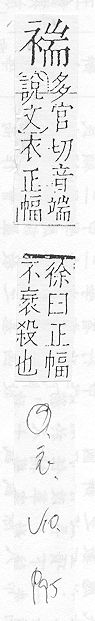 褍
多官切音端
說文衣正幅
徐曰正幅
不衺殺也
④.
衣.
V10.
P95